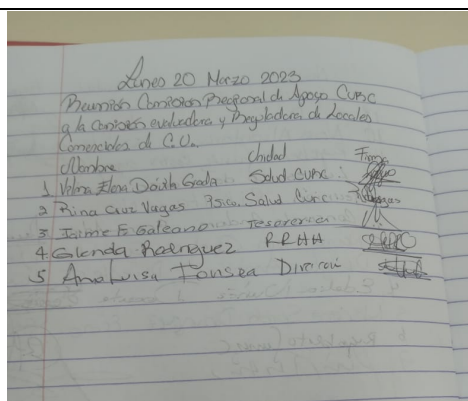 Lunes 20 Marzo 2023
Reunión Comision Regional de Apoyo CURC
a la Comisión evaluadora y Reguladora de Locales
Comerciales de C.U.
Nombre Unidad Firma
1 Vilma Elena Dávila Grada Salud CURC
2 Rina Cruz Vagas Psico. Salud Curc
3 Jaime F. Galeano Tesoreria
4. Glenda Rodriguez RRHH
5 Ana Luisa Fonseca Dirección